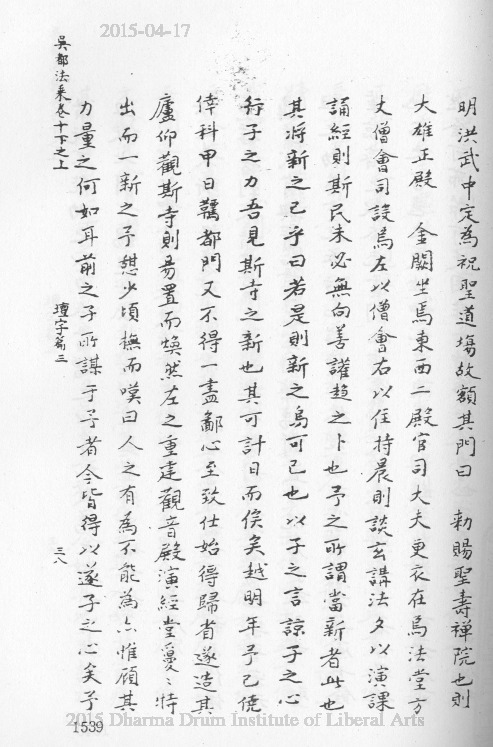 2015-04-17
明洪武中定為祝聖道塲故額其門曰　勅賜聖壽禅院也則
大雄正殿　金闕坐焉東西二殿官司大夫更衣在焉法堂方
丈僧會司設焉左以僧會右以住持晨則談玄講法夕以演課
誦經則斯民未必無向善讙趋之卜也予之所謂當新者此也
其将新之已乎曰若是則新之烏可已也以子之言諒子之心
行子之力吾見斯寺之新也其可計日而俟矣越明年予已僥
倖科甲日覊都門又不得一盡鄙心至致仕始得歸省遂造其
廬仰觀斯寺則易置而煥然左之重建觀音殿演經堂憂〻特
出而一新之予憇少頃撫而嘆曰人之有為不能為亦惟顧其
力量之何如耳前之子所謀于予者今皆得以遂子之心矣予
吳都法乗卷十下之上
壇宇篇三
三八
1539
2015 Dharma Drum Institute of Liberal Arts